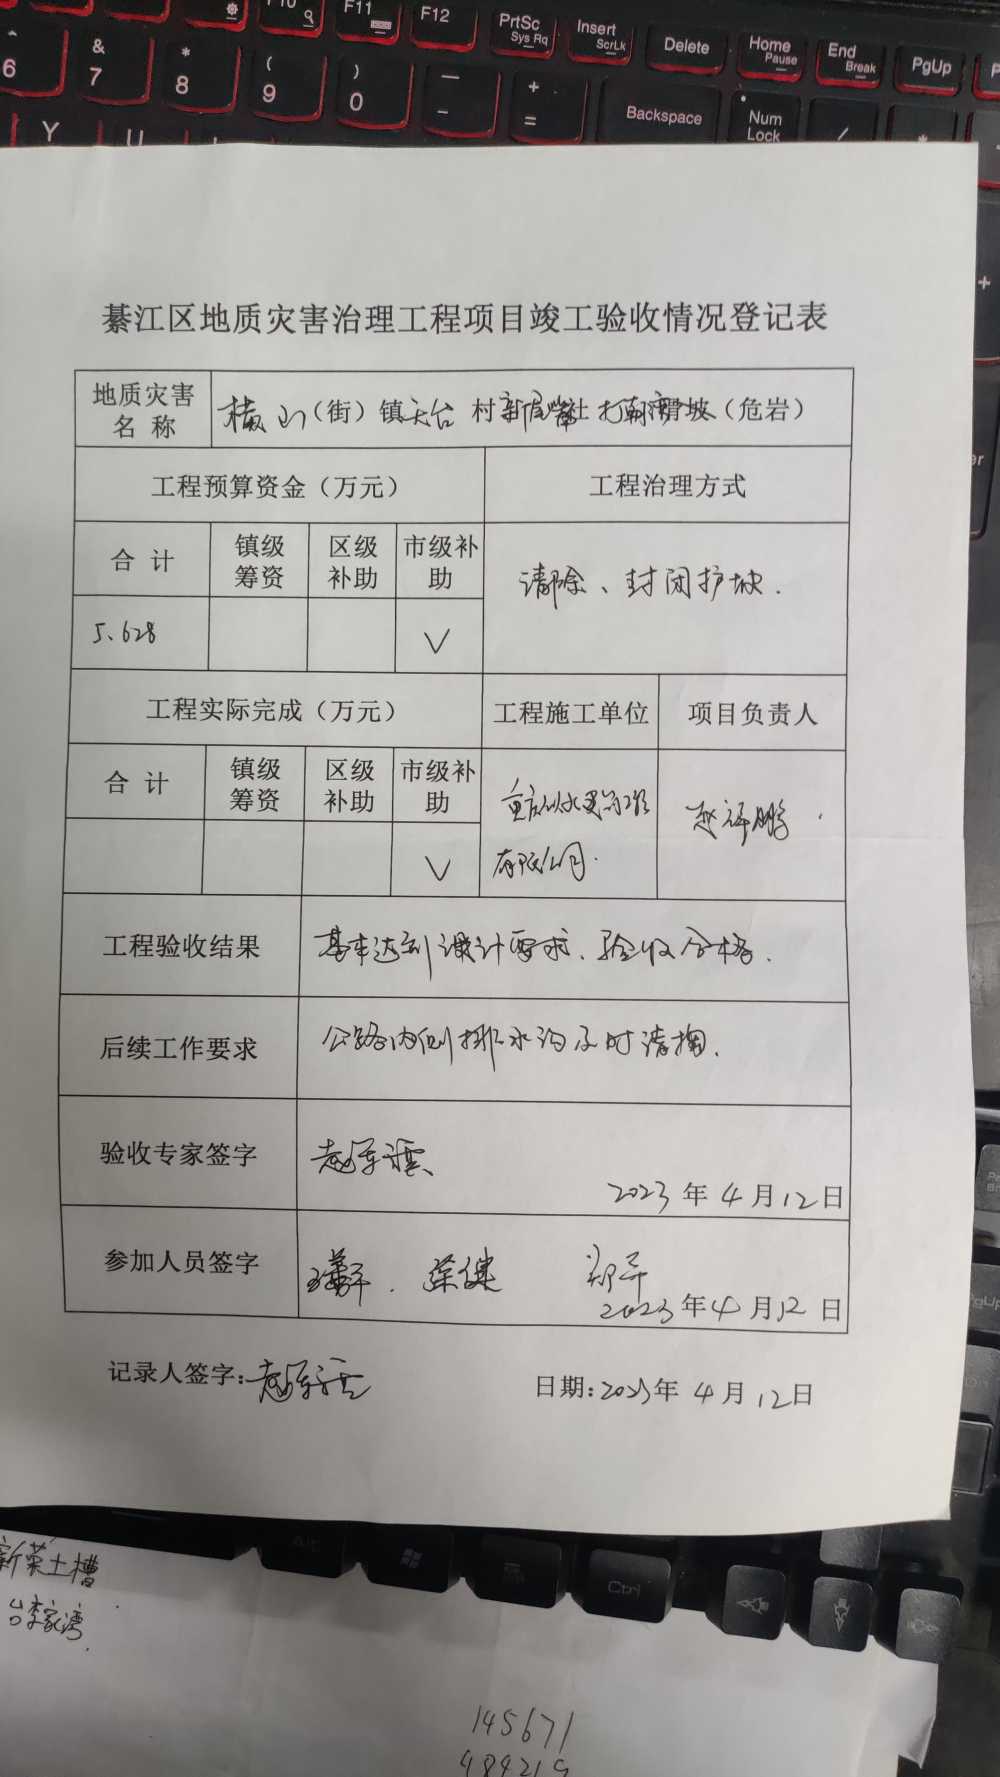 F10
F11
F12
PrtSc
Sys Rq
Insert
ScrLk
Delete
Home
Pause
End
Break
PgUp
6
&
7
*
8
(
9
)
0
—
-
+
=
Backspace
Num
Lock
/
*
Y
U
綦江区地质灾害治理工程项目竣工验收情况登记表
地质灾害
名 称
横山（街）镇天台 村 社 坡（危岩）
工程预算资金（万元） 工程治理方式
合 计 镇级筹资 区级补助 市级补助
清除、封闭护坡.
5.628 √
工程实际完成（万元） 工程施工单位 项目负责人
合 计 镇级筹资 区级补助 市级补助
重庆
有限公司.
√
工程验收结果 基本达到设计要求.验收合格.
后续工作要求 公路内侧排水沟及时清掏.
验收专家签字
2023 年 4 月 12 日
参加人员签字
2023 年 4 月 12 日
记录人签字: 日期: 2023 年 4 月 12 日
Alt
Ctrl
新菜土槽
台李家湾.
145671
484219